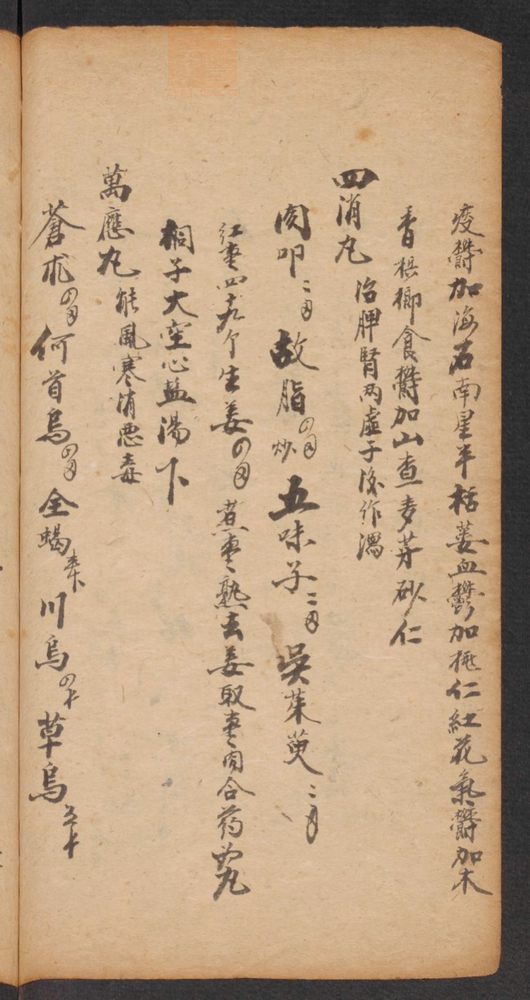 痰鬱加海石南星半栝蒌血鬱加桃仁紅花氣鬱加木
香梹榔食鬱加山查麦芽砂仁
四消丸 治脾腎两虛子後作瀉
肉叩二两 故脂四两炒 五味子二两 吳茱萸二两
紅枣四十九个生姜四两 煮枣熟去姜取枣肉合药为丸
桐子大空心盐湯下
萬應丸 能風寒消悪毒
蒼朮四两 何首烏四两 全蝎 川烏四十 草烏